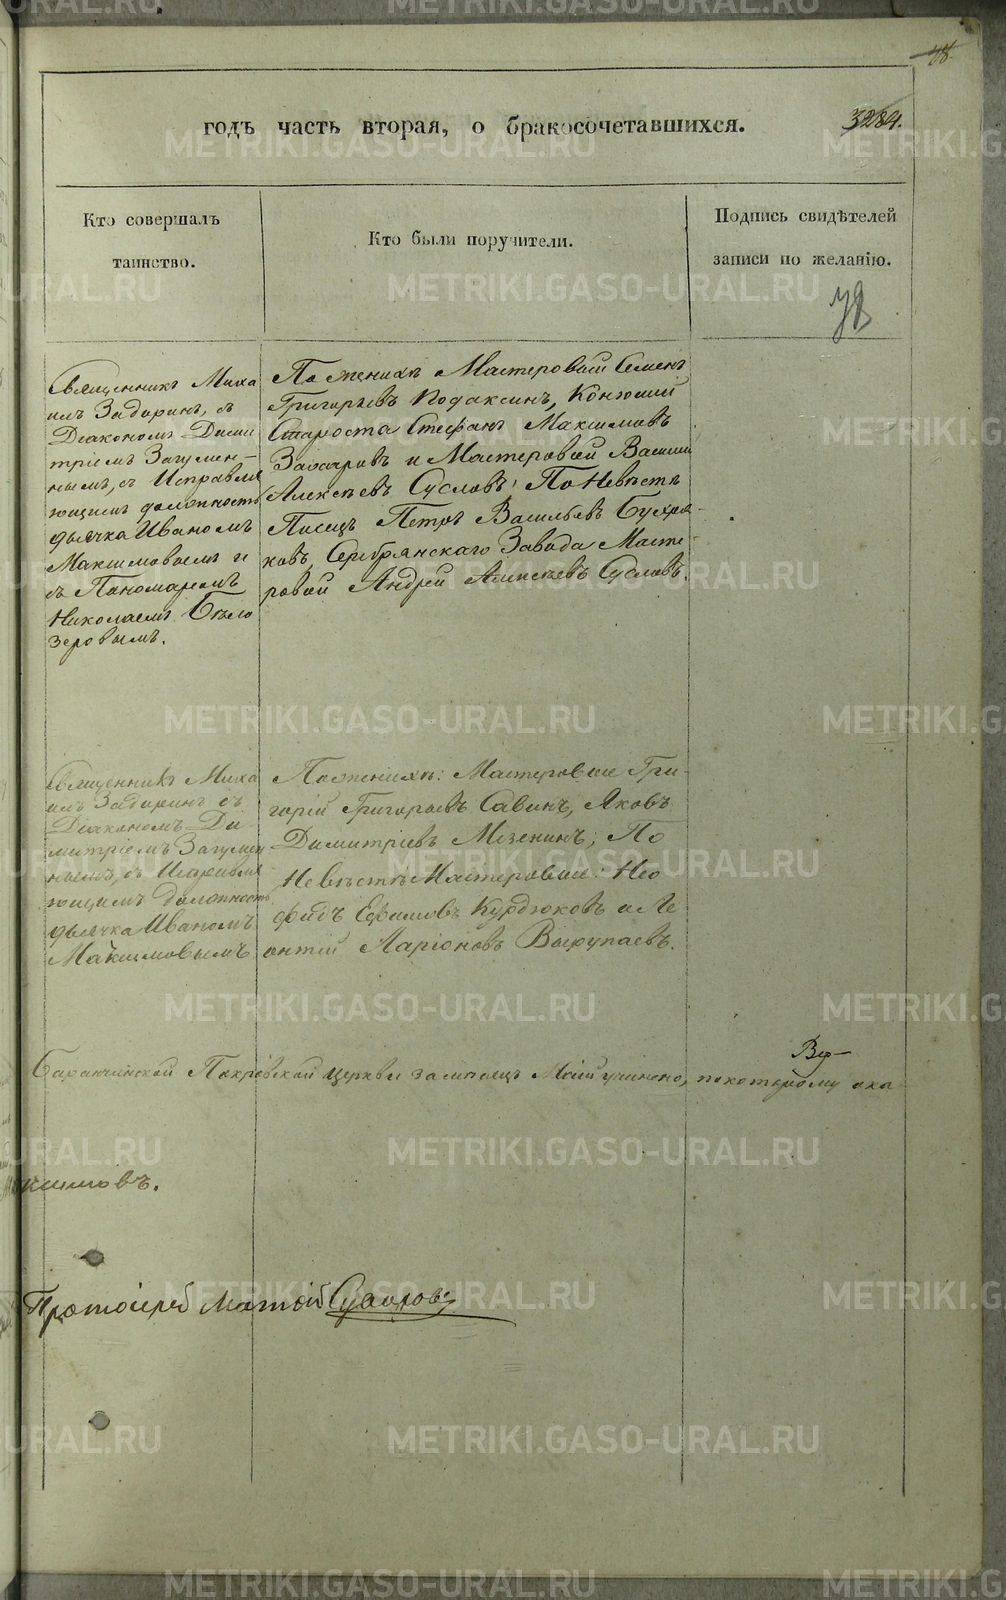 48.
годъ часть вторая, о бракосочетавшихся.
3284.
Кто совершалъ
таинство.
Кто были поручители.
Подпись свидѣтелей
записи по желанію.
Священникъ Миха
илъ Задоринъ, съ
Діакономъ Дими
тріемъ Загумен-
нымъ, съ Исправля
ющимъ должность
дьячка Иваномъ
Максимовымъ и
съ Пономаремъ
Николаемъ Бѣло
зеровымъ.
По женихѣ Мастеровой Семенъ
Григорьевъ Кодаксинъ, Конюшій
Староста Стефанъ Максимовъ
Захаровъ и Мастеровой Василій
Алексѣевъ Сусловъ; По Невѣстѣ
Писецъ Петръ Васильевъ Бухря-
ковъ, Серебрянскаго Завода Масте-
ровой Андрей Алексѣевъ Сусловъ.
Священникъ Миха
илъ Задоринъ съ
Діакономъ Ди
митріемъ Загумен
нымъ, съ Исправля
ющимъ должность
дьячка Иваномъ
Максимовымъ
По женихѣ: Мастеровые Гри-
горій Григорьевъ Савинъ, Яковъ
Димитріевъ Мезенинъ; По
Невѣстѣ Мастеровые: Нео
фидъ Ефимовъ Курдюковъ и Ле
онтій Ларіоновъ Выгупаевъ.
Баранчинской Покровской церкви за мѣсяцъ Май учинено, по которому ока
ксимовъ.
Протоіерей Матѳій Суворовъ
METRIKI.GASO-URAL.RU